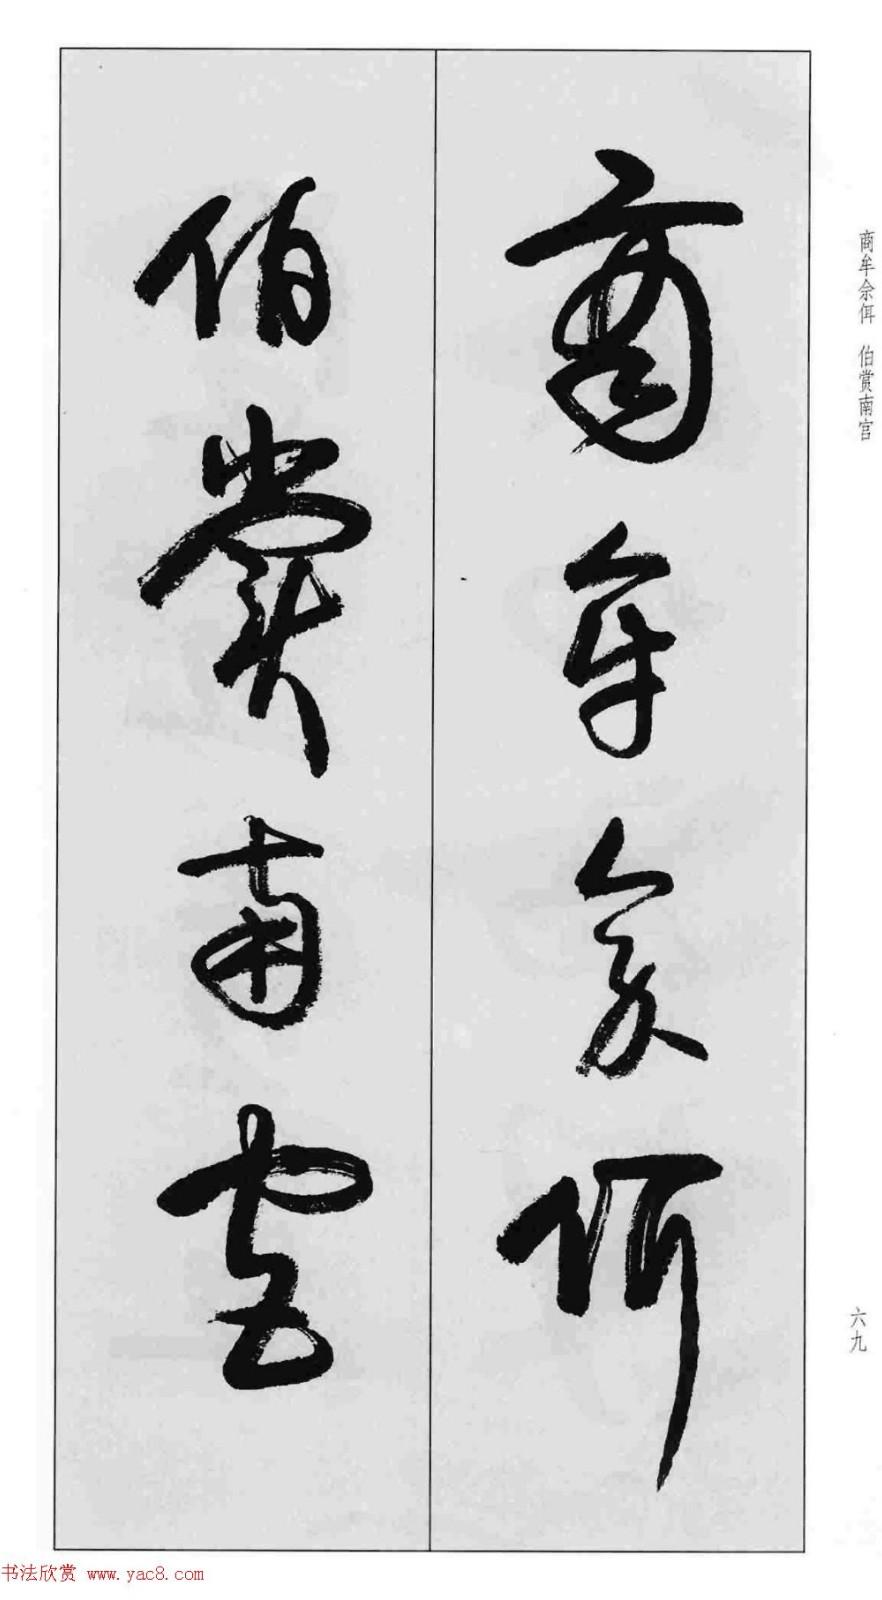 商牟佘佴 伯赏南宫
商牟佘佴
伯赏南宫
六九
书法欣赏 www.yac8.com